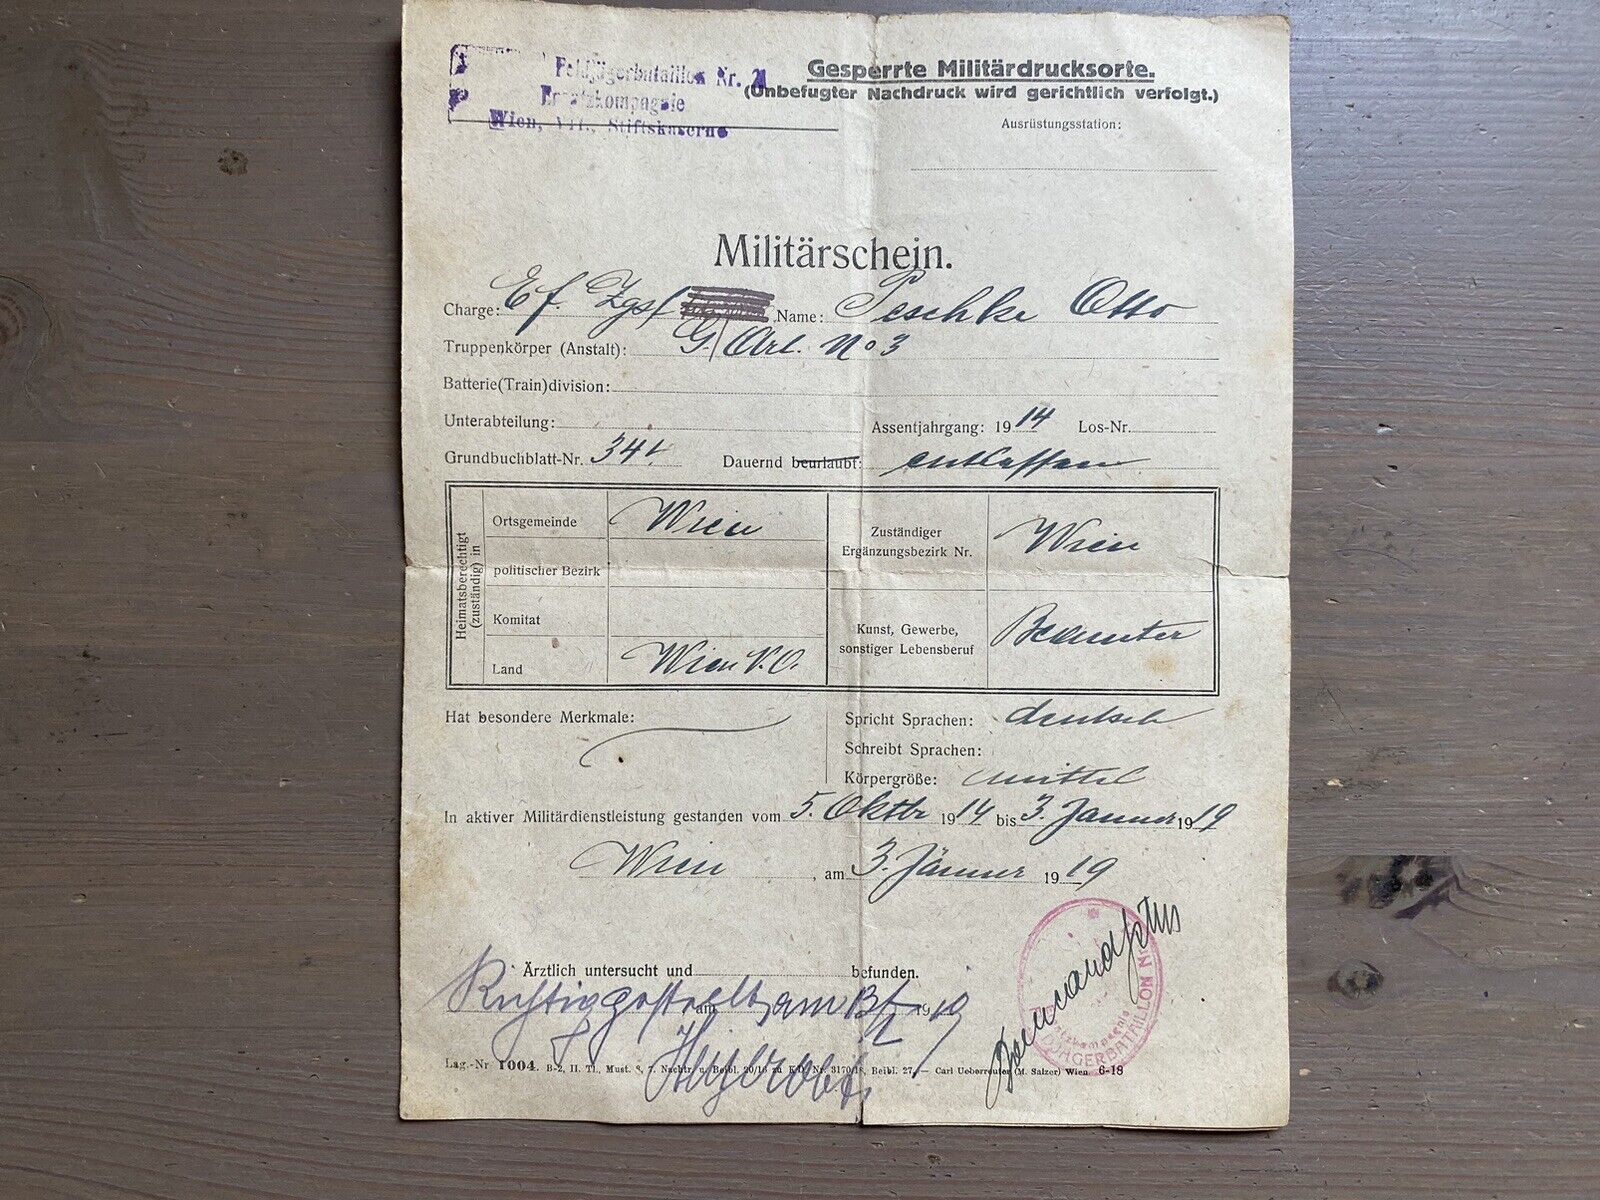 Feldjägerbataillon Nr. 21
Ersatzkompagnie
Wien, VII., Stiftskaserne
Gesperrte Militärdrucksorte.
(Unbefugter Nachdruck wird gerichtlich verfolgt.)
Ausrüstungsstation:
Militärschein.
Charge: Ef. Zgsf Name: Peschke Otto
Truppenkörper (Anstalt): G. Art. No 3
Batterie(Train)division:
Unterabteilung: Assentjahrgang: 1914 Los-Nr.
Grundbuchblatt-Nr. 341. Dauernd beurlaubt: entlassen
Heimatsberechtigt (zuständig) in
Ortsgemeinde Wien
politischer Bezirk
Komitat
Land Wien N.Ö.
Zuständiger Ergänzungsbezirk Nr. Wien
Kunst, Gewerbe, sonstiger Lebensberuf Beamter
Hat besondere Merkmale:
Spricht Sprachen: deutsch
Schreibt Sprachen:
Körpergröße: mittel
In aktiver Militärdienstleistung gestanden vom 5. Oktbr 1914 bis 3. Jänner 1919
Wien, am 3. Jänner 1919
Ärztlich untersucht und befunden.
Richtiggestellt am am 1919
Ersatzkompagnie
DJÄGERBATAILLON Nr
Lag.-Nr 1004. B-2, II. Tl., Must. 8, 7. Nachtr. u. Beibl. 20/16 zu K.D. Nr. 3170/18, Beibl. 27. — Carl Ueberreuter (M. Salzer) Wien. 6-18